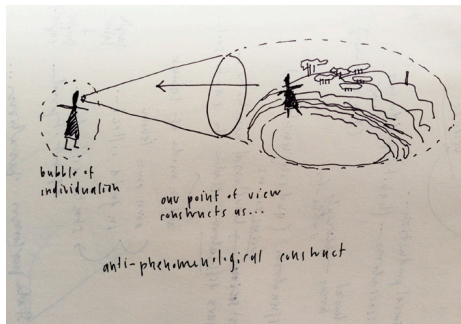 bubble of
individuation
our point of view
constructs us...
anti-phenomenological construct